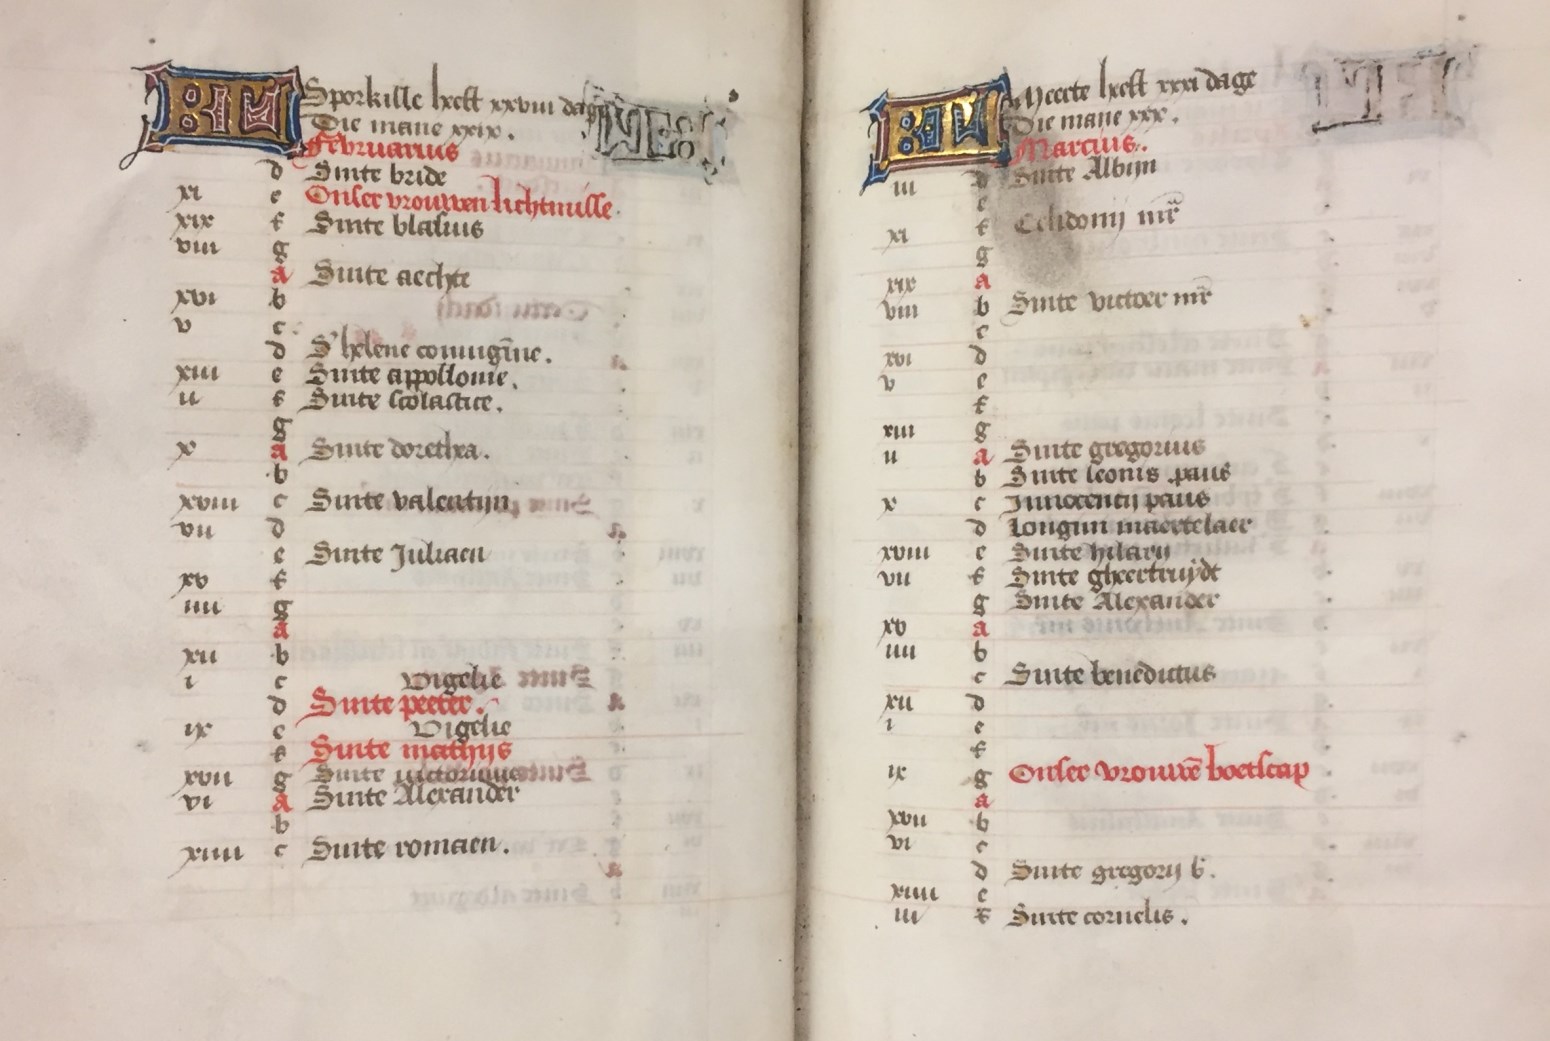 KL Sporkille heeft xxviii dage
Die mane xxix.
Februarius
d Sinte bride
xi e Onser vrouwen lichtmisse.
xix f Sinte blasius
viii g
a Sinte aechte
xvi b
v c
d S' helene coniugine.
xiii e Sinte appollonie.
ii f Sinte scolastice.
g
x a Sinte dorethea.
b
xviii c Sinte valentijn
vii d
e Sinte Juliaen
xv f
iiii g
a
xii b
i c Vigelie
d Sinte peeter.
ix e Vigelie
f Sinte mathijs
xvii g Sinte victorinus
vi a Sinte Alexander
b
xiiii c Sinte romaen.
KL Meerte heeft xxxi dage
Die mane xxx.
Marcius.
iii d Sinte Albijn
e
xi f Celidonij mr̄
g
xix a
viii b Sinte victoer mr̄
c
xvi d
v e
f
xiii g
ii a Sinte gregorius
b Sinte leonis paus
x c Innocentij paus
d Longini maertelaer
xviii e Sinte hilarij
vii f Sinte gheertruydt
g Sinte Alexander
xv a
iiii b
c Sinte benedictus
xii d
i e
f
ix g Onser vrouwē boetscap
a
xvii b
vi c
d Sinte gregorij b.
xiiii e
iii f Sinte cornelis.